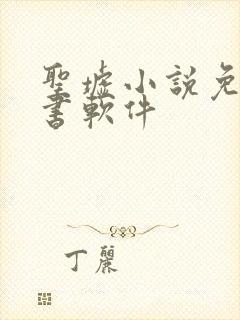 聖墟小說免
書軟件
丁麗